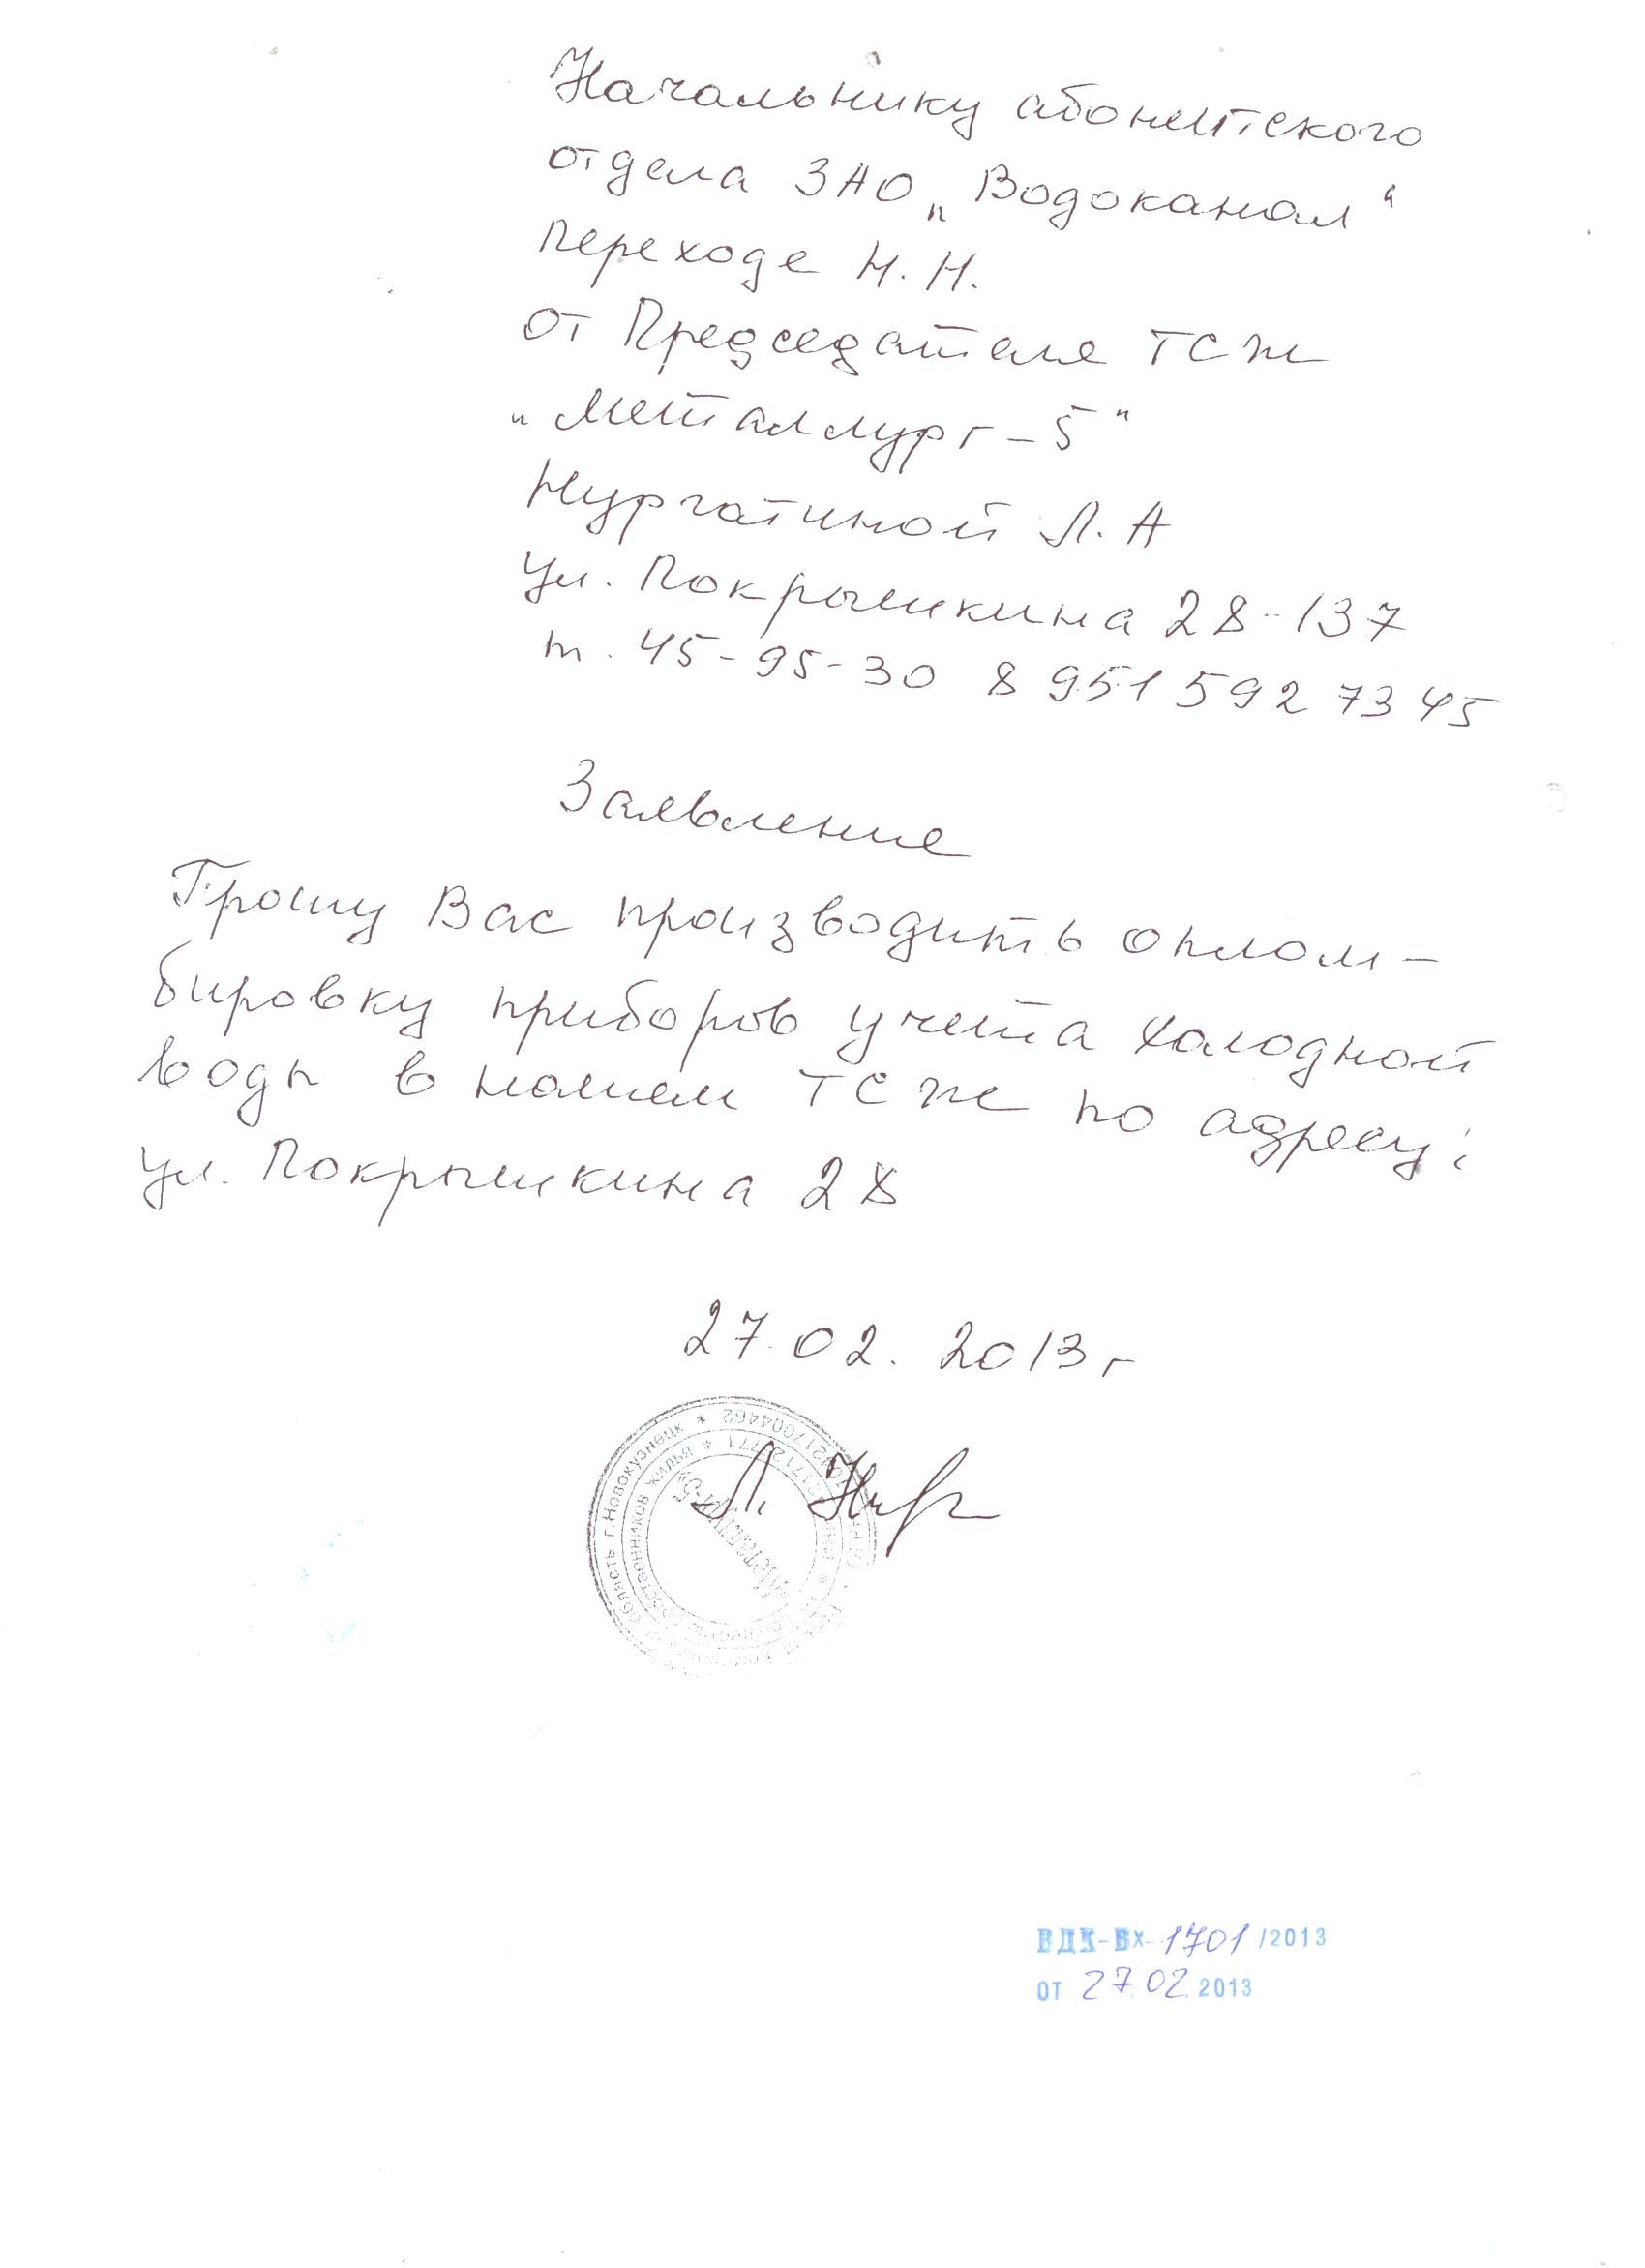 Начальнику абонентского
отдела ЗАО „Водоканал“
Переходе Н. Н.
от Председателя ТСЖ
"Металлург-5"
Нургатиной Л. А
ул. Покрышкина 28-137
т. 45-95-30 8 951 592 73 45
Заявление
Прошу Вас производить оплом-
бировку приборов учета холодной
воды в нашем ТСЖ по адресу:
ул. Покрышкина 28
27.02.2013г
область г.Новокузнецк *
жилья *
"Металлург-5"
Л. Нур
ВДК-ВХ-1701/2013
от 27.02.2013